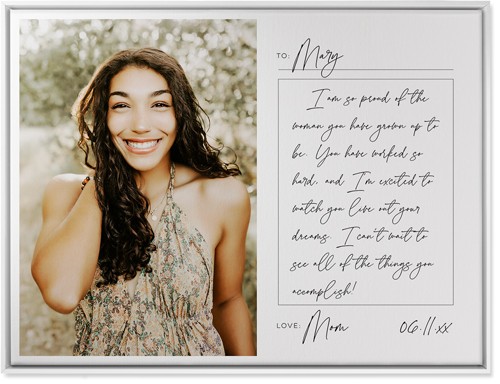 TO: Mary
I am so proud of the
woman you have grown up to
be. You have worked so
hard, and I'm excited to
watch you live out your
dreams. I can't wait to
see all of the things you
accomplish!
LOVE: Mom 06.11.xx